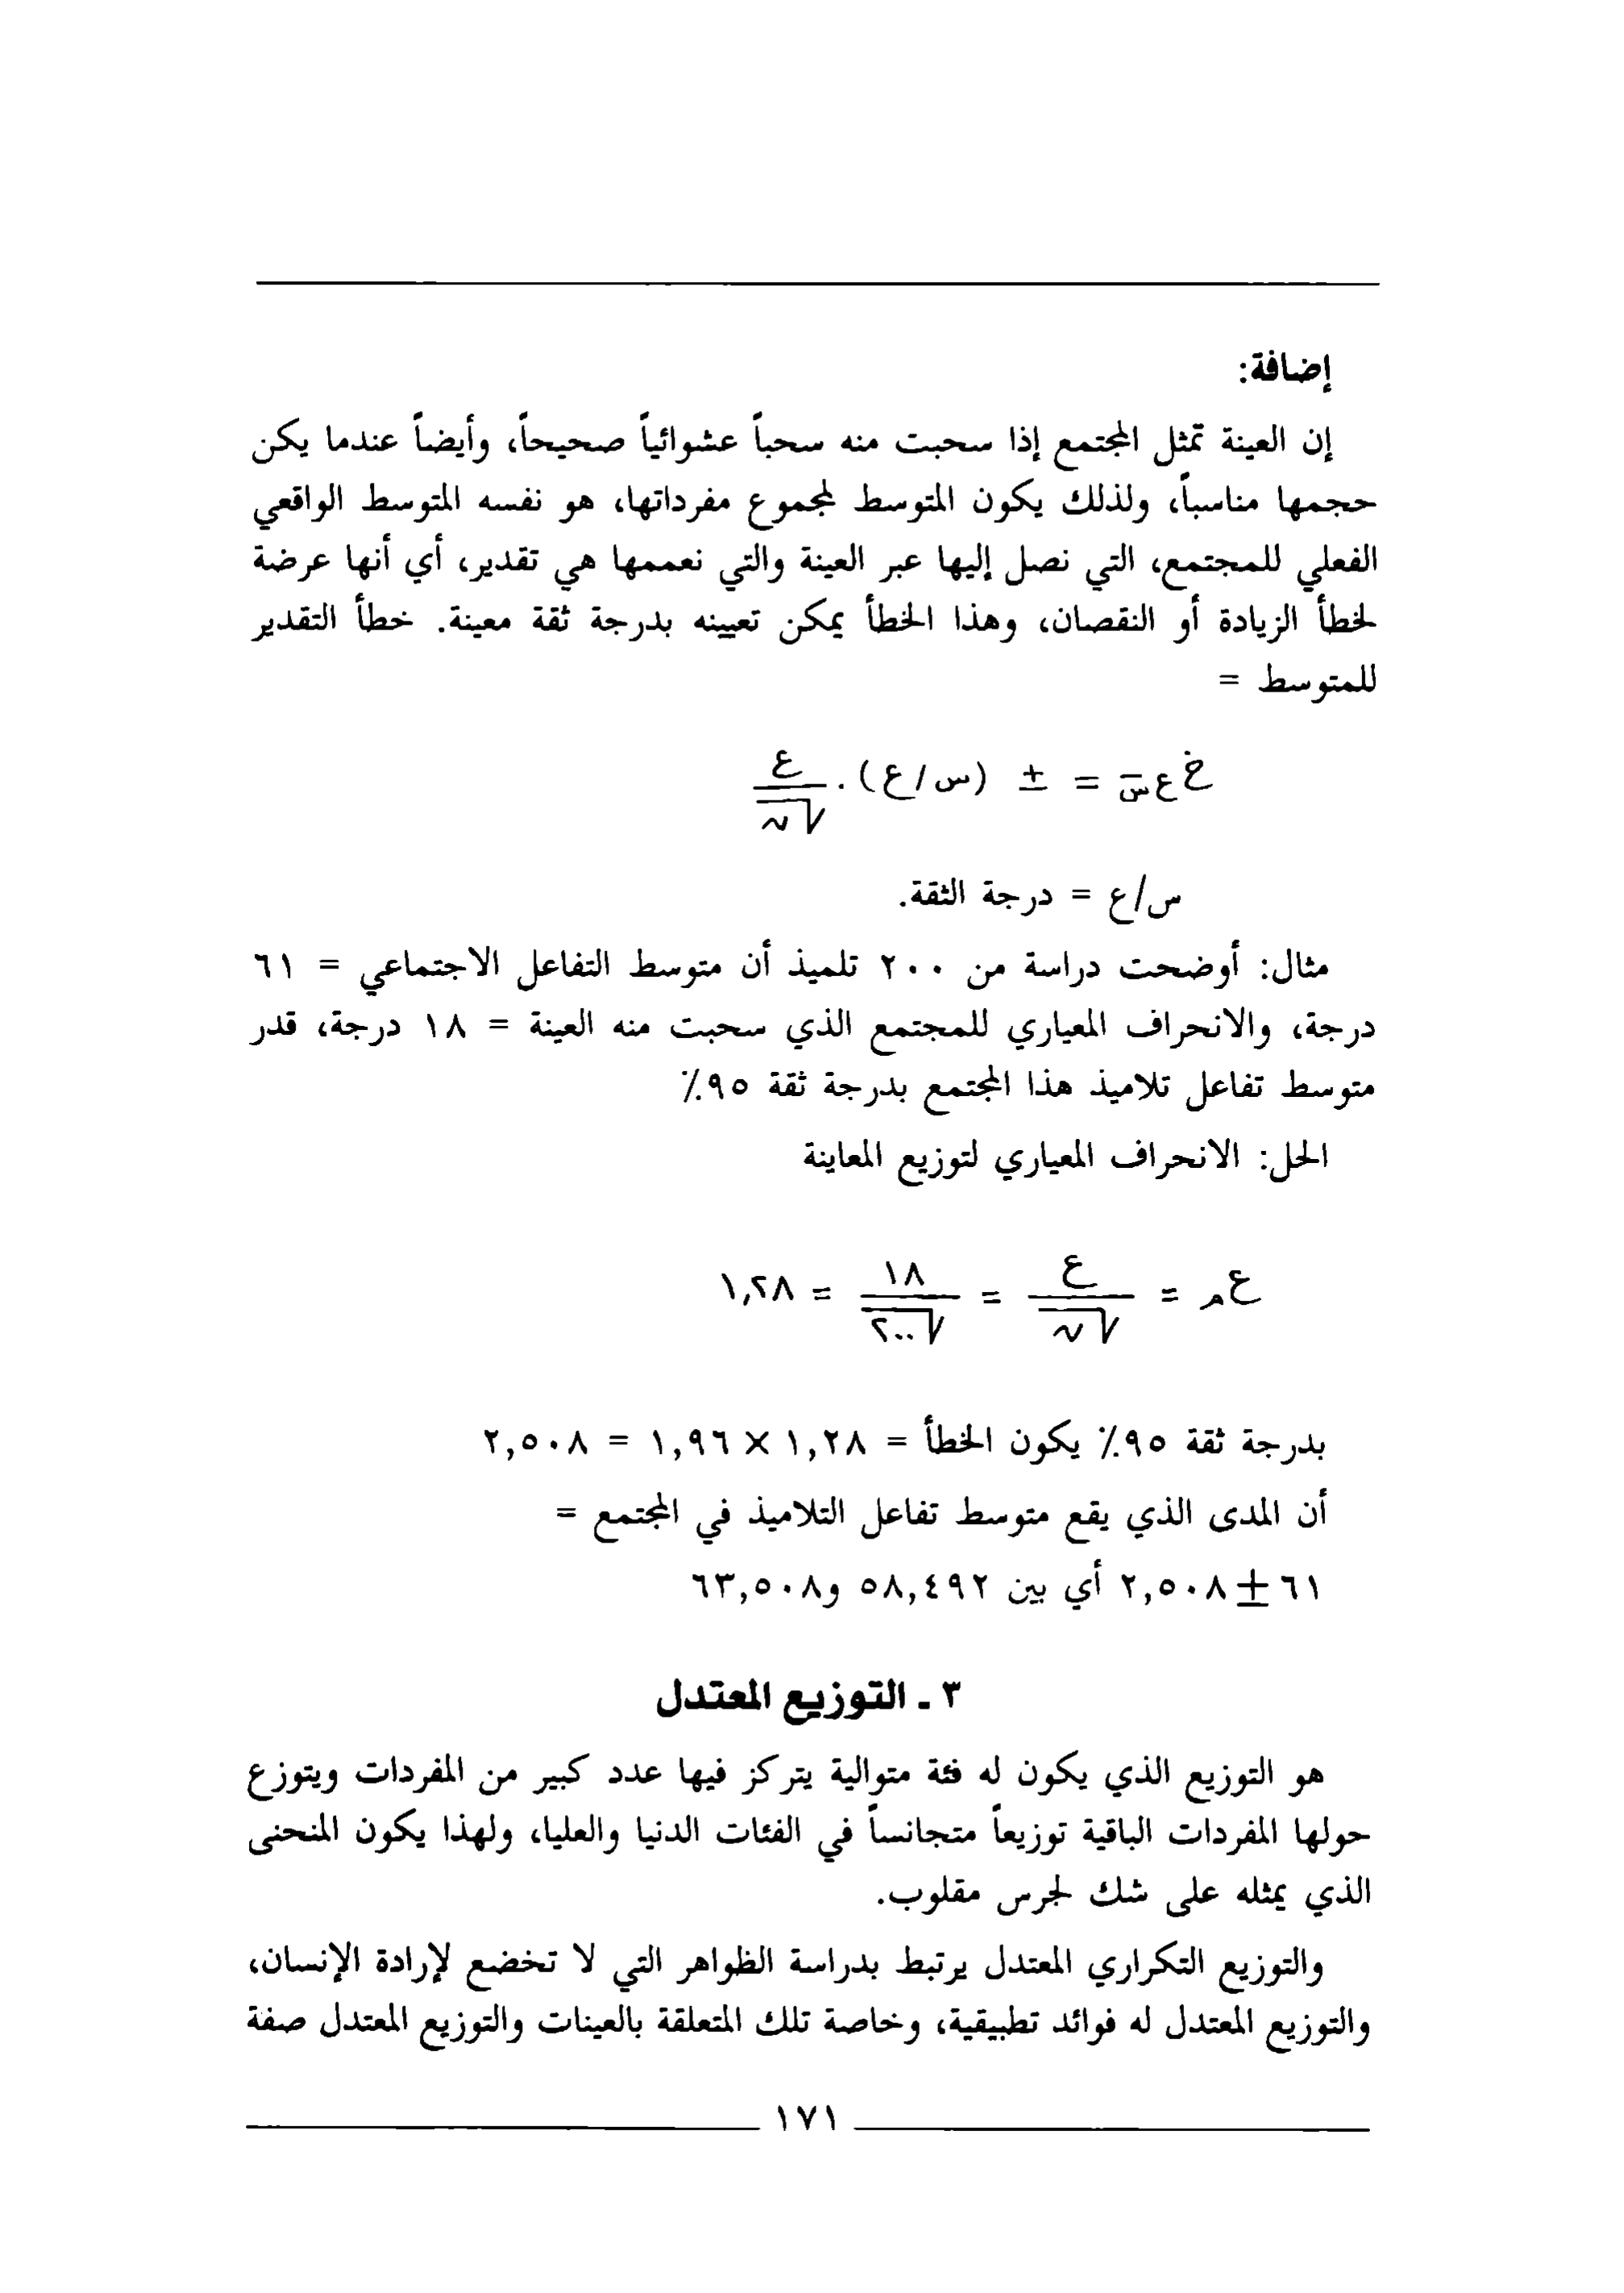 إضافة:
إن العينة تمثل المجتمع إذا سحبت منه سحباً عشوائياً صحيحاً، وأيضاً عندما يكن
حجمها مناسباً، ولذلك يكون المتوسط لمجموع مفرداتها، هو نفسه المتوسط الواقعي
الفعلي للمجتمع، التي نصل إليها عبر العينة والتي نعممها هي تقدير، أي أنها عرضة
لخطأ الزيادة أو النقصان، وهذا الخطأ يمكن تعيينه بدرجة ثقة معينة. خطأ التقدير
للمتوسط =
خ ع س̄ = ± (س/ع) . ع / √ن
س/ع = درجة الثقة.
مثال: أوضحت دراسة من ٢٠٠ تلميذ أن متوسط التفاعل الاجتماعي = ٦١
درجة، والانحراف المعياري للمجتمع الذي سحبت منه العينة = ١٨ درجة، قدر
متوسط تفاعل تلاميذ هذا المجتمع بدرجة ثقة ٩٥٪
الحل: الانحراف المعياري لتوزيع المعاينة
ع م = ع / √ن = ١٨ / √٢٠٠ = ١,٢٨
بدرجة ثقة ٩٥٪ يكون الخطأ = ١,٢٨ × ١,٩٦ = ٢,٥٠٨
أن المدى الذي يقع متوسط تفاعل التلاميذ في المجتمع =
٦١ ± ٢,٥٠٨ أي بين ٥٨,٤٩٢ و٦٣,٥٠٨
٣ ـ التوزيع المعتدل
هو التوزيع الذي يكون له فئة متوالية يتركز فيها عدد كبير من المفردات ويتوزع
حولها المفردات الباقية توزيعاً متجانساً في الفئات الدنيا والعليا، ولهذا يكون المنحنى
الذي يمثله على شك لجرس مقلوب.
والتوزيع التكراري المعتدل يرتبط بدراسة الظواهر التي لا تخضع لإرادة الإنسان،
والتوزيع المعتدل له فوائد تطبيقية، وخاصة تلك المتعلقة بالعينات والتوزيع المعتدل صفة
١٧١